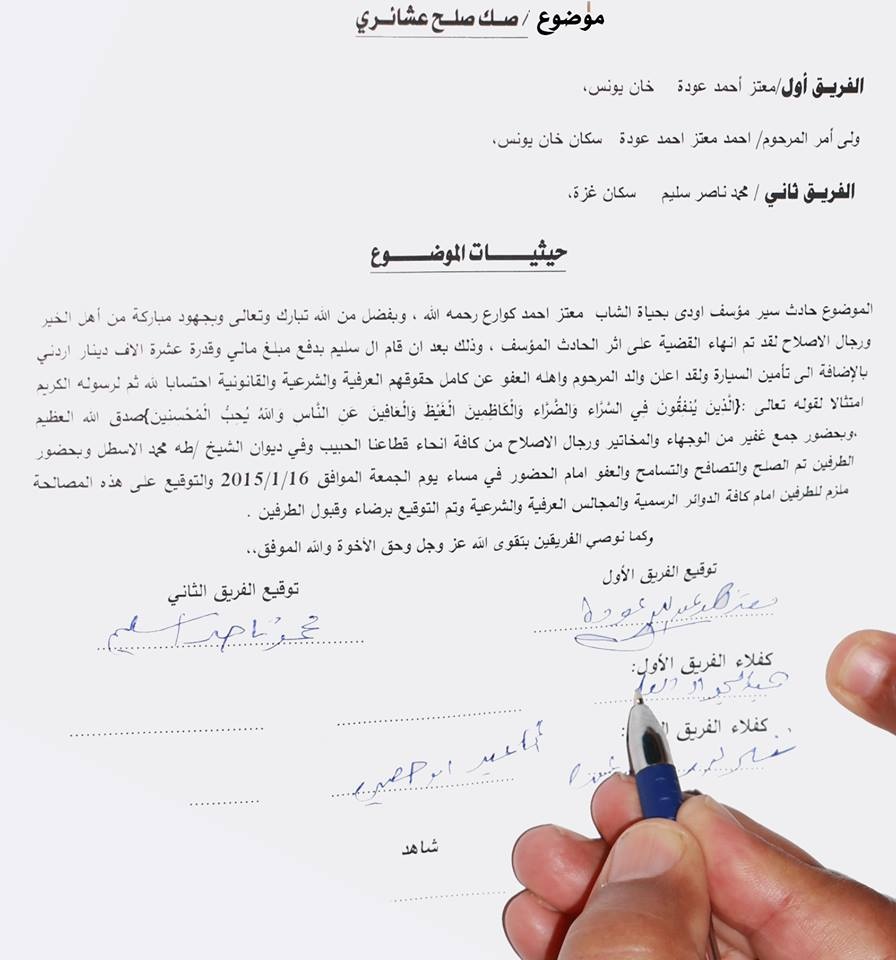 موضوع / صك صلح عشائري
الفريق أول/معتز أحمد عودة خان يونس،
ولى أمر المرحوم/ احمد معتز احمد عودة سكان خان يونس،
الفريق ثاني / محمد ناصر سليم سكان غزة،
حيثيات الموضوع
الموضوع حادث سير مؤسف اودى بحياة الشاب معتز احمد كوارع رحمه الله ، وبفضل من الله تبارك وتعالى وبجهود مباركة من أهل الخير
ورجال الاصلاح لقد تم انهاء القضية على اثر الحادث المؤسف ، وذلك بعد ان قام ال سليم بدفع مبلغ مالي وقدرة عشرة الاف دينار اردني
بالإضافة الى تأمين السيارة ولقد اعلن والد المرحوم واهله العفو عن كامل حقوقهم العرفية والشرعية والقانونية احتسابا لله ثم لرسوله الكريم
امتثالا لقوله تعالى :{الَّذينَ يُنفقُونَ في السَّرَّاء وَالضَّرَّاء وَالْكَاظِمِينَ الْغَيْظَ وَالْعَافينَ عَنِ النَّاسِ وَاللهُ يُحبُّ الْمُحْسنين}صدق الله العظيم
،وبحضور جمع غفير من الوجهاء والمخاتير ورجال الاصلاح من كافة انحاء قطاعنا الحبيب وفي ديوان الشيخ /طه محمد الاسطل وبحضور
الطرفين تم الصلح والتصافح والتسامح والعفو امام الحضور في مساء يوم الجمعة الموافق 2015/1/16 والتوقيع على هذه المصالحة
ملزم للطرفين امام كافة الدوائر الرسمية والمجالس العرفية والشرعية وتم التوقيع برضاء وقبول الطرفين .
وكما نوصي الفريقين بتقوى الله عز وجل وحق الأخوة والله الموفق،،
توقيع الفريق الأول
توقيع الفريق الثاني
محمد ناصر سليم
كفلاء الفريق الأول:
كفلاء الفريق
شاهد